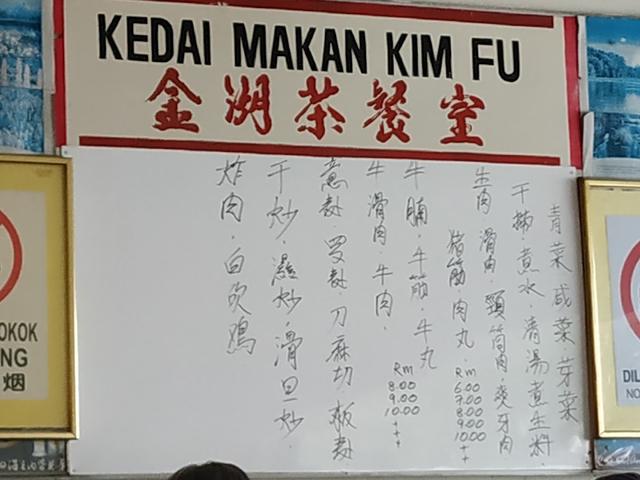 KEDAI MAKAN KIM FU
金湖茶餐室
青菜咸菜芽菜
干撈·煮水·清湯煮生料
生肉 滑肉 頸筒肉·爽牙肉
猪筋·肉丸·
RM
6.00
7.00
8.00
9.00
10.00
++
牛腩·牛筋·牛丸
牛滑肉·牛肉·
RM
8.00
9.00
10.00
+
+
干炒·濕炒·滑旦炒·
炸肉·白砍鸡
OKOK
NG
烟
DIL
NO